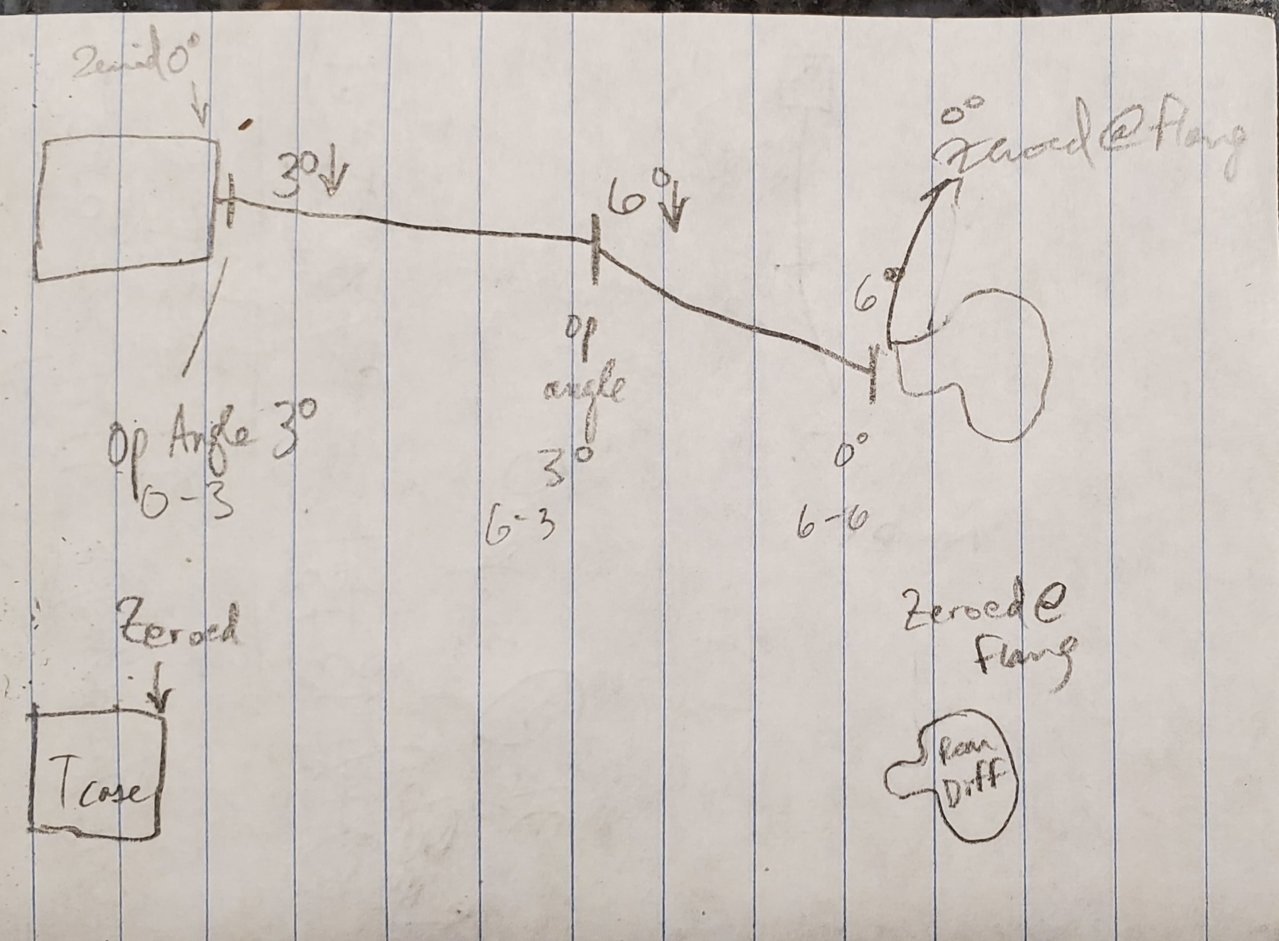 Zeroed 0°
0°
Zeroed @ Flang
3°↓
6°↓
6°
Op Angle 3°
0-3
op
angle
3°
6-3
0°
6-6
Zeroed
Tcase
Zeroed @
Flang
Rear
Diff